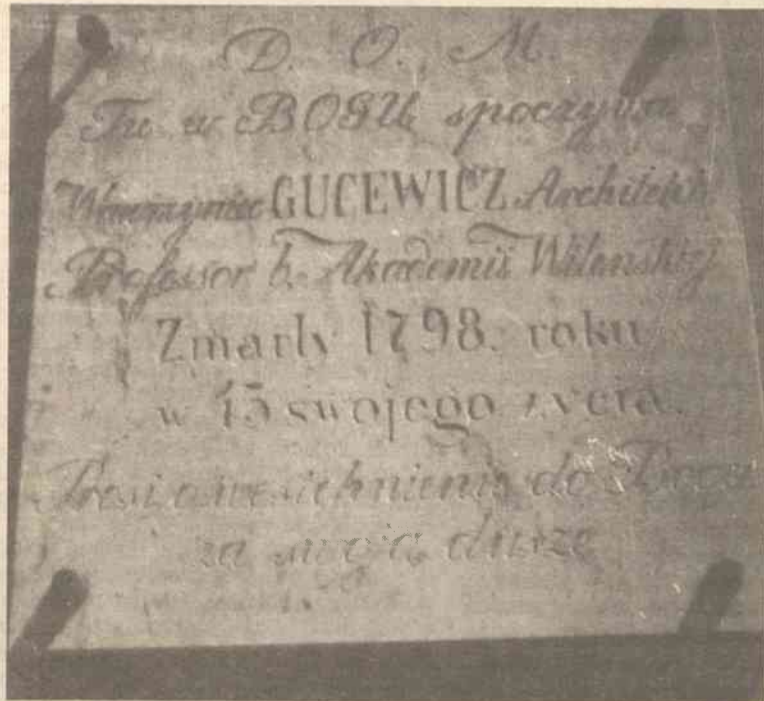 D. O. M.
Tu w BOGU spoczywa
Wawrzyniec GUCEWICZ Architekt
Professor b. Akademii Wilenskiej
Zmarły 1798. roku
w 45 swojego życia.
Prosi o westchnienie do Boga
za swoją duszę